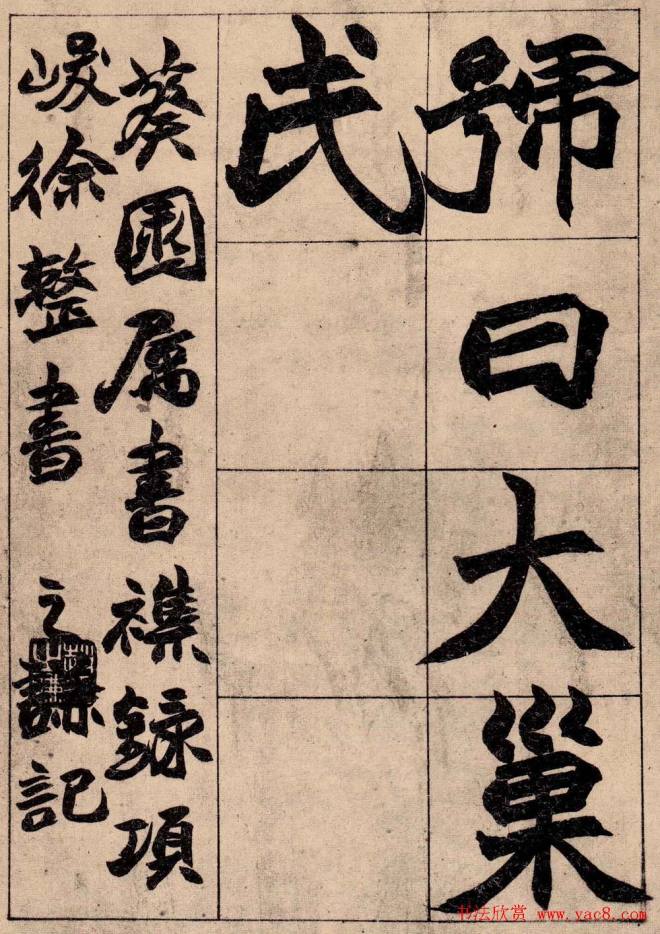 號曰大巢
氏
葵園屬書襍錄項
峻徐整書 之謙記
书法欣赏 www.yac8.com